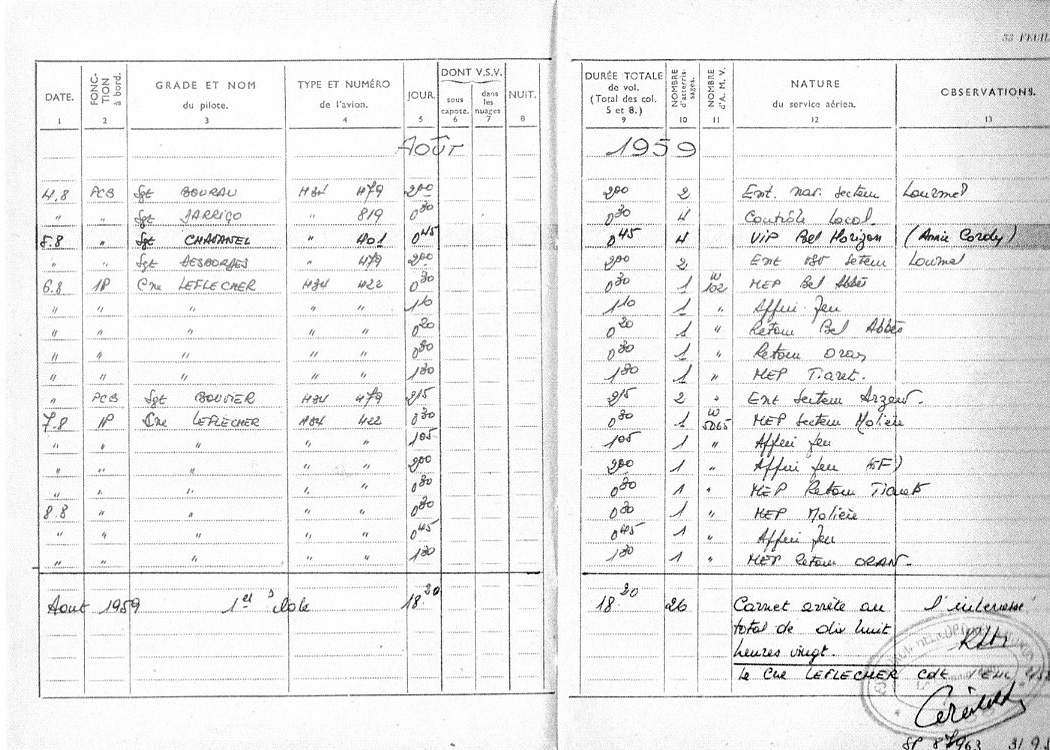 33 FEUIL
DATE. FONCTION à bord. GRADE ET NOM du pilote. TYPE ET NUMÉRO de l'avion. JOUR. DONT V.S.V. sous capote. dans les nuages NUIT. DURÉE TOTALE de vol. (Total des col. 5 et 8.) NOMBRE d'atterrissages. NOMBRE d'A. M. V. NATURE du service aérien. OBSERVATIONS.
1 2 3 4 5 6 7 8 9 10 11 12 13
AOÛT 1959
4.8 PCB Sgt BOURAU H34 479 2 00 2 00 2 Ent. nav. secteur Lourmel
" " Sgt JARRIGO " 819 0 30 0 30 4 Contrôle Local
5.8 " Sgt CHABANEL " 401 0 45 0 45 4 VIP Bel Horizon (Annie Cordy)
" " Sgt DESBORDES " 479 2 00 2 00 2 Ent secteur Lourmel
6.8 1P Cne LEFLECHER H34 422 0 30 0 30 1 W 102 MEP Bel Abbès
" " " " " 1 10 1 10 1 " Appui feu
" " " " " 0 20 0 20 1 " Retour Bel Abbès
" " " " " 0 30 0 30 1 " Retour Oran
" " " " " 1 30 1 30 1 " MEP Tiaret.
" PCB Sgt BOUVIER H34 479 2 15 2 15 2 " Ent secteur Arzew.
7.8 1P Cne LEFLECHER H34 422 0 30 0 30 1 W 5065 MEP secteur Molière
" " " " " 1 05 1 05 1 " Appui feu
" " " " " 2 00 2 00 1 " Appui feu
" " " " " 0 30 0 30 1 " MEP Retour Tiaret
8.8 " " " " 0 30 0 30 1 " MEP Molière
" " " " " 0 45 0 45 1 " Appui feu
" " " " 1 30 1 30 1 " MEP Retour ORAN.
Aout 1959 18 20 18 20 26 Carnet arrêté au l'intéressé
total de dix huit
heures vingt.
le Cne LEFLECHER Cdt